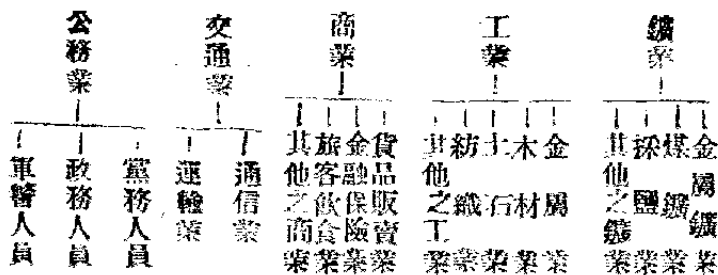 鑛業
金屬鑛業
煤鑛業
採鹽業
其他之鑛業
工業
金屬業
木材業
土石業
紡織業
其他之工業
商業
貨品販賣業
金融保險業
旅客飲食業
其他之商業
交通業
通信業
運輸業
公務業
黨務人員
政務人員
軍警人員